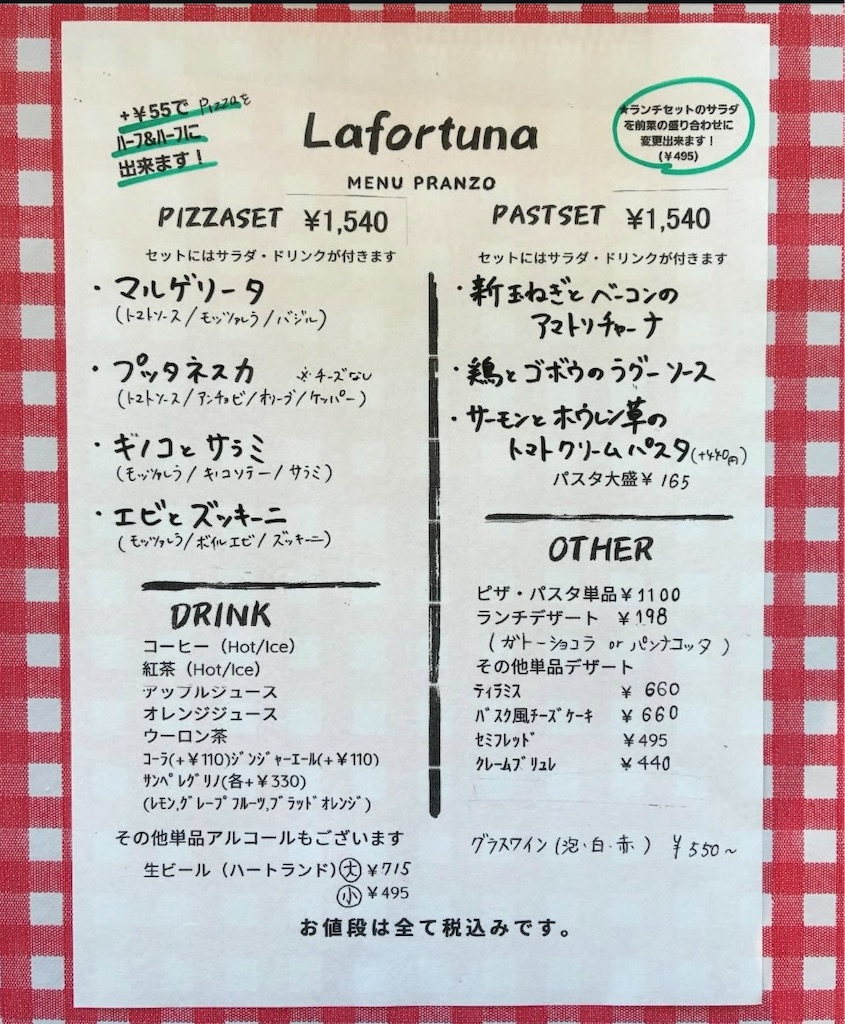 +¥55で Pizzaを
ﾊｰﾌ&ﾊｰﾌに
出来ます！
★ランチセットのサラダ
を前菜の盛り合わせに
変更出来ます！
(¥495)
Lafortuna
MENU PRANZO
PIZZASET ¥1,540
セットにはサラダ・ドリンクが付きます
・マルゲリータ
(トマトソース/モッツァレラ/バジル)
・プッタネスカ ※チーズなし
(トマトソース/アンチョビ/オリーブ/ケッパー)
・キノコとサラミ
(モッツァレラ/キノコソテー/サラミ)
・エビとズッキーニ
(モッツァレラ/ボイルエビ/ズッキーニ)
DRINK
コーヒー（Hot/Ice）
紅茶（Hot/Ice）
アップルジュース
オレンジジュース
ウーロン茶
ｺｰﾗ(+¥110)ｼﾞﾝｼﾞｬｰｴｰﾙ(+¥110)
ｻﾝﾍﾟﾚｸﾞﾘﾉ(各+¥330)
(ﾚﾓﾝ,ｸﾞﾚｰﾌﾟﾌﾙｰﾂ,ﾌﾞﾗｯﾄﾞｵﾚﾝｼﾞ)
その他単品アルコールもございます
生ビール（ハートランド）大 ¥715
小 ¥495
PASTSET ¥1,540
セットにはサラダ・ドリンクが付きます
・新玉ねぎとベーコンの
アマトリチャーナ
・鶏とゴボウのラグーソース
・サーモンとホウレン草の
トマトクリームパスタ(+440円)
パスタ大盛¥165
OTHER
ピザ・パスタ単品¥1100
ランチデザート ¥198
(ガトーショコラ or パンナコッタ)
その他単品デザート
ﾃｨﾗﾐｽ ¥660
ﾊﾞｽｸ風ﾁｰｽﾞｹｰｷ ¥660
ｾﾐﾌﾚｯﾄﾞ ¥495
ｸﾚｰﾑﾌﾞﾘｭﾚ ¥440
グラスワイン(泡・白・赤) ¥550~
お値段は全て税込みです。